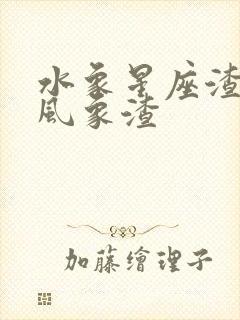 水象星座渣
風象渣
加藤繪理子